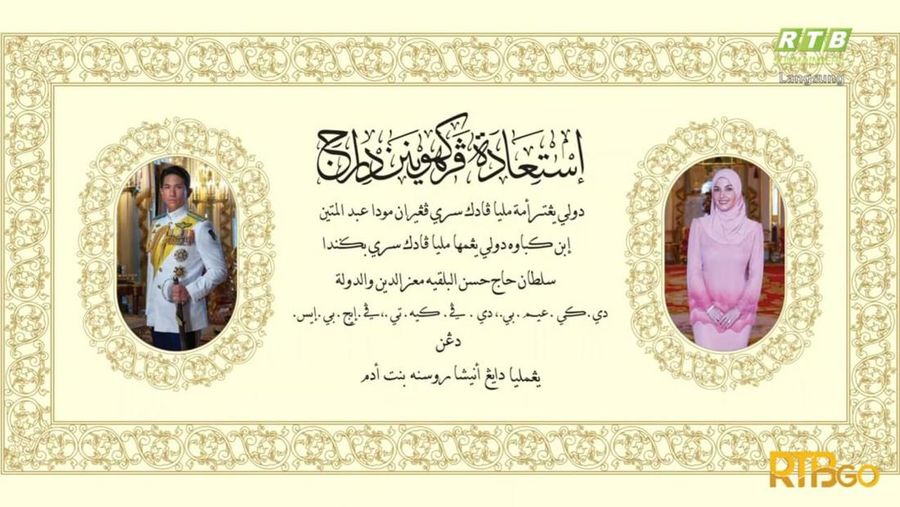 RTB
Langsung
إستعادة ڤركهوينن دراج
دولي يڠتر أمة مليا ڤادك سري ڤڠيران مودا عبد المتين
إبن كباوه دولي يڠمها مليا ڤادك سري بݢندا
سلطان حاج حسن البلقيه معزالدين والدولة
دي. كي. عيم. بي.، دي. ڤي. كيه. تي.، ڤي. إيچ. بي. إيس.
دڠن
يڠمليا دايڠ أنيشا روسنه بنت أدم
RTBGO